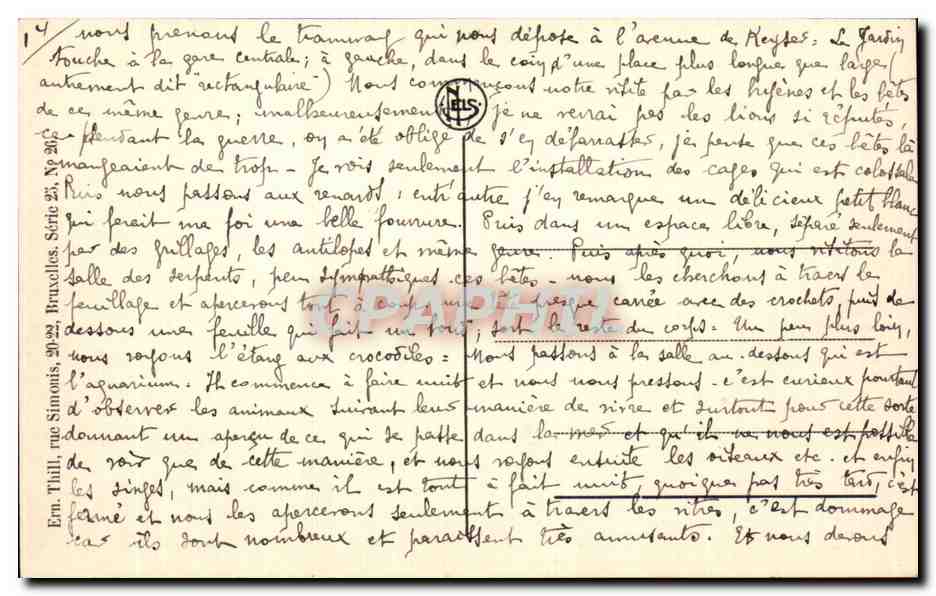 14/ nous prenons le tramway qui nous dépose à l'avenue de Keyser. Le Jardin
touche à la gare centrale; à gauche, dans le coin d'une place plus longue que large (
autrement dit "rectangulaire") Nous commençons notre visite par les hyènes et les bêtes
de ce même genre; malheureusement, je ne verrai pas les lions si réputés.
car pendant la guerre, on a été obligé de s'en débarrasser, je pense que ces bêtes là
mangeaient de trop - Je vois seulement l'installation des cages qui est colossale
Puis nous passons aux renards: entr'autre j'en remarque un délicieux petit blanc
qui ferait ma foi une belle fourrure. Puis dans un espace libre, séparé seulement
par des grillages, les antilopes et même genre. Puis après quoi, nous visitons la
salle des serpents, peu sympathiques ces bêtes - nous les cherchons à travers le
feuillage et apercevons tout à coup une presque carrée avec des crochets, puis de
dessous une feuille qui fait un rond, sort le reste du corps. Un peu plus loin,
nous voyons l'étang aux crocodiles. Nous passons à la salle au-dessous qui est
l'aquarium. Il commence à faire nuit et nous nous pressons - c'est curieux pourtant
d'observer les animaux suivant leur manière de vivre et surtout pour cette sorte
donnant un aperçu de ce qui se passe dans la mer et qu'il ne nous est possible
de voir que de cette manière, et nous voyons ensuite les oiseaux etc. et enfin
les singes, mais comme il est tout à fait nuit, quoique pas très tard, c'est
fermé et nous les apercevons seulement à travers les vitres, c'est dommage
car ils sont nombreux et paraissent très amusants. Et nous devons
NELS
Ern. Thill, rue Simonis, 20-22, Bruxelles. Série 25, No 26
CPAPHIL